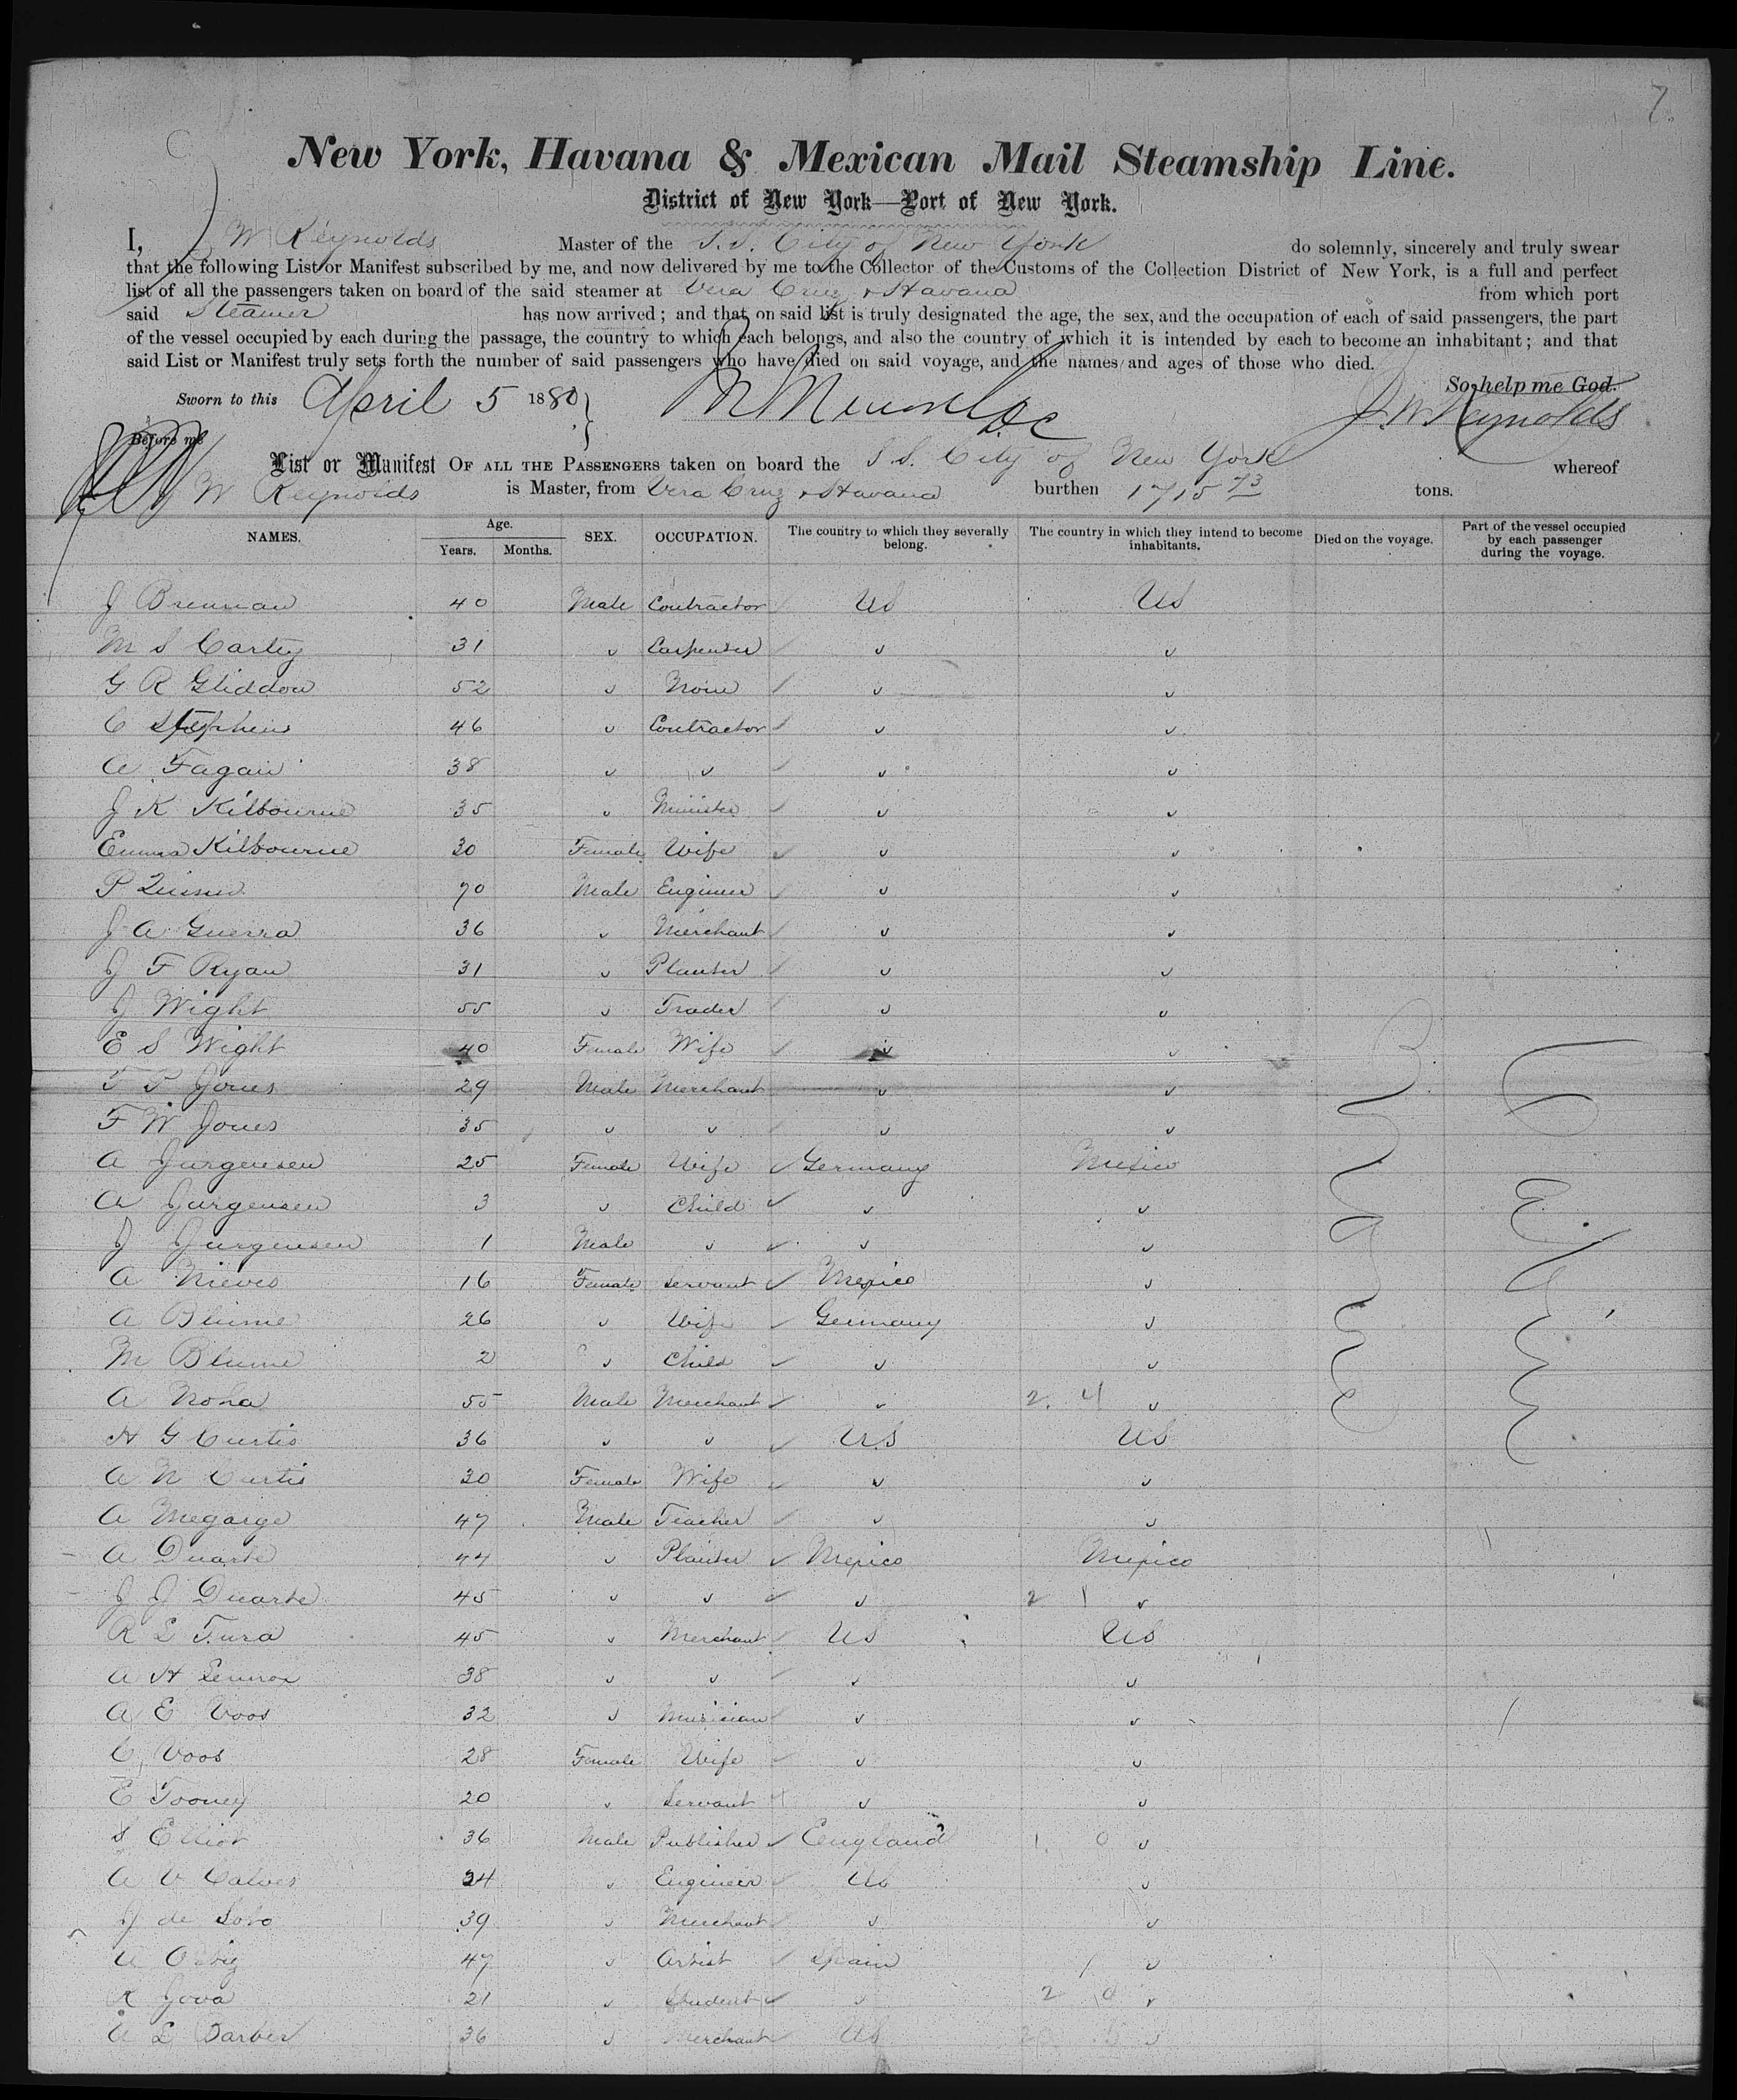 7.
New York, Havana & Mexican Mail Steamship Line.
District of New York—Port of New York.
I, J W Reynolds Master of the S.S. City of New York do solemnly, sincerely and truly swear
that the following List or Manifest subscribed by me, and now delivered by me to the Collector of the Customs of the Collection District of New York, is a full and perfect
list of all the passengers taken on board of the said steamer at Vera Cruz & Havana from which port
said Steamer has now arrived; and that on said list is truly designated the age, the sex, and the occupation of each of said passengers, the part
of the vessel occupied by each during the passage, the country to which each belongs, and also the country of which it is intended by each to become an inhabitant; and that
said List or Manifest truly sets forth the number of said passengers who have died on said voyage, and the names and ages of those who died.
So help me God.
Sworn to this April 5 1880 J. W. Reynolds
Before me
List or Manifest OF ALL THE PASSENGERS taken on board the S.S. City of New York whereof
J W Reynolds is Master, from Vera Cruz & Havana burthen 1715 73 tons.
NAMES. Age. Years. Months. SEX. OCCUPATION. The country to which they severally belong. The country in which they intend to become inhabitants. Died on the voyage. Part of the vessel occupied by each passenger during the voyage.
J Brennan 40 Male Contractor US US
M S Carty 31 " Carpenter " "
G R Gliddon 52 " None " "
C Stephens 46 " Contractor " "
A Fagan 38 " " " "
J K Kilbourne 35 " Minister " "
Emma Kilbourne 30 Female Wife " "
P 70 Male Engineer " "
J A Guerra 36 " Merchant " "
J F Ryan 31 " Planter " "
J Wight 55 " Trader " "
E S Wight 40 Female Wife " "
T P Jones 29 Male Merchant " "
F W Jones 35 " " " "
A Jurgensen 25 Female Wife Germany Mexico
A Jurgensen 3 " Child " "
J Jurgensen 1 Male " " "
A Nieves 16 Female Servant Mexico "
A Blume 26 " Wife Germany "
M Blume 2 " Child " "
A 55 Male Merchant " 2. 4 "
H G Curtis 36 " " US US
A N Curtis 30 Female Wife " "
A Megarge 47 Male Teacher " "
A Duarte 44 " Planter Mexico Mexico
J J Duarte 45 " " " 2 1 "
R L 45 " Merchant US US
A H Lennox 38 " " " "
A E Voos 32 " Musician " "
C Voos 28 Female Wife " "
E Tooney 20 " Servant " "
S Elliot 36 Male Publisher England 1. 0 "
A V " Engineer US "
J de Soto 39 " Merchant " "
A 47 " Artist Spain "
R Gova 21 " Student " 2 0 "
A L Barber 36 " Merchant US "